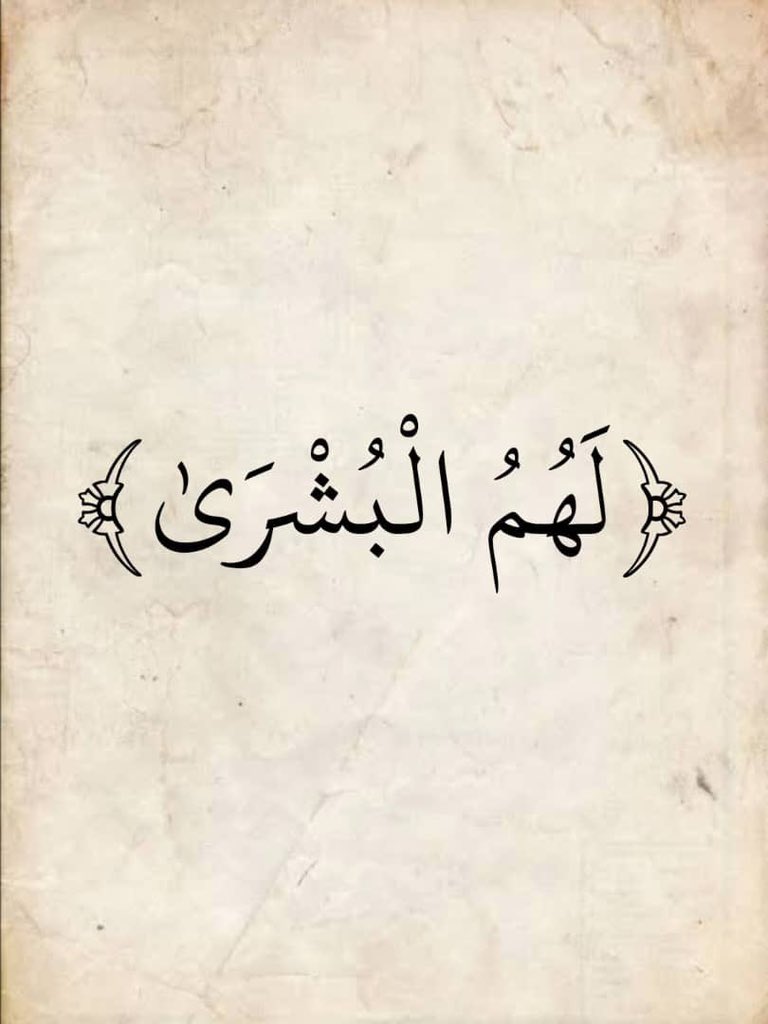 ﴿لَهُمُ الْبُشْرَىٰ﴾